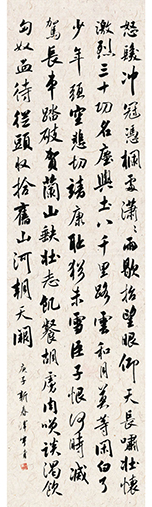 怒髮冲冠憑欄處瀟瀟雨歇抬望眼仰天長嘯壯懷
激烈三十功名塵與土八千里路雲和月莫等閑白了
少年頭空悲切靖康恥猶未雪臣子恨何時滅
駕長車踏破賀蘭山缺壯志飢餐胡虜肉笑談渴飲
匈奴血待從頭收拾舊山河朝天闕
庚子新春